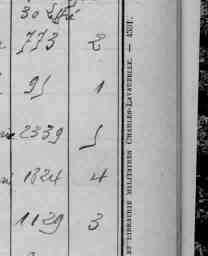 30
773 2
95 1
2339 5
1824 4
1129 3
LIBRAIRIE MILITAIRE CHARLES-LAVAUZELLE. — 4301.